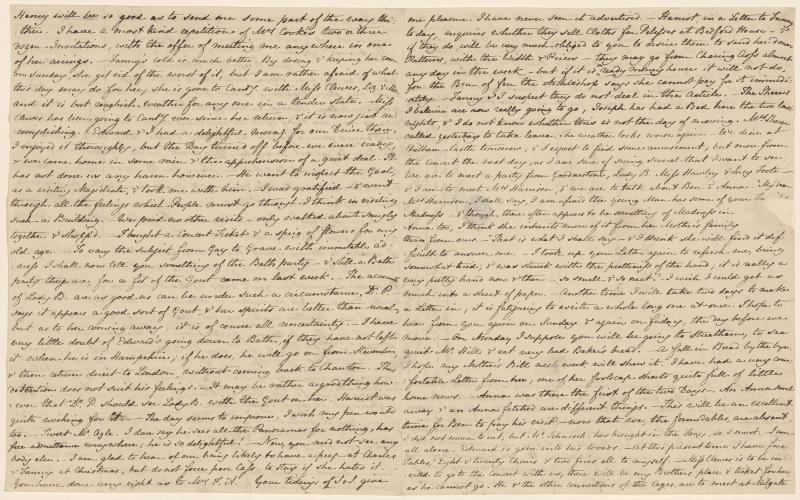 Henry will be so good as to send me some part of the way thi-
-ther. I have a most kind repetition of Mrs Cooke's two or three
dozen Invitations, with the offer of meeting me anywhere in one
of her airings. - Fanny's cold is much better. By dosing & keeping her room
on sunday, she got rid of the worst of it, but I am rather afraid of what
this day may do for her; she is gone to Canty with Miss Clewes, Liz. & Ma
and it is but roughish weather for any one in a tender state. - Miss
Clewes has been going to Canty ever since her return, & it is now just ac
complishing. Edward & I had a delightful morng for our Drive there,
I enjoyed it thoroughly, but the Day turned off before we were ready,
& we came home in some rain & the apprehension of a great deal. It
has not done us any harm however. - He went to inspect the Gaol,
as a visiting Magistrate, & took me with him. - I was gratified - & went
through all the feelings which People must go through I think in visiting
such a Building. - We paid no other visits - only walked about snugly
together & shopp'd. - I bought a Concert Ticket & a sprig of flowers for my
old age. - To vary the subject from Gay to Grave with inimitable ad-
dress I shall now tell you something of the Bath party - & still a Bath
party they are, for a fit of the Gout came on last week. - The accounts
of Lady B. are as good as can be under such a circumstance, Dr P.
says it appears a good sort of Gout, & her spirits are better than usual,
but as to her coming away, it is of course all uncertainty. - I have
very little doubt of Edward's going down to Bath, if they have not left
it when he is in Hampshire; if he does, he will go on from Steventon,
& then return direct to London, without coming back to Chawton. - This
detention does not suit his feelings. - It may be rather a good thing how
-ever that Dr P. should see Lady B. with the Gout on her. Harriot was
quite wishing for it. - The day seems to improve. I wish my pen would
too. - Sweet Mr Ogle. I dare say he sees all the Panoramas for nothing, has
free admittance everywhere; he is so delightful! - Now, you need not see any
body else. - I am glad to hear of our being likely to have a peep at Charles
& Fanny at Christmas, but do not force poor Cass. to stay if she hates it.
You have done very right as to Mrs F. A. - Your tidings of S & S. give
me pleasure. I have never seen it advertised. - Harriot, in a Letter to Fanny
to day, enquires whether they sell Cloths for Pelisses at Bedford House - &
if they do, will be very much obliged to you to desire them to send her down
Patterns, with the Width & Prices - they may go from Charing Cross almost
any day in the week - but if it is a ready money house it will not do,
for the Bru of feu the Archbishop says she cannot pay for it immedi-
-ately. - Fanny & I suspect they do not deal in the Article. - The Sherers
I believe are now really going to go, Joseph has had a Bed here the two last
nights, & I do not know whether this is not the day of moving. Mrs Sherer
called yesterday to take leave. The weather looks worse again. - We dine at
Chilham Castle tomorrow, & I expect to find some amusement; but more from
the Concert the next day, as I am sure of seeing several that I want to see.
We are to meet a party from Goodnestone, Lady B. Miss Hawley & Lucy Foote -
& I am to meet Mrs Harrison, & we are to talk about Ben & Anna. "My dear
Mrs Harrison, I shall say, I am afraid the young Man has some of your
Madness - & though there often appears to be something of Madness in
Anna too, I think she inherits more of it from her Mother's family
than from ours. - That is what I shall say - & I think she will find it dif
ficult to answer me. - I took up your Letter again to refresh me, being
somewhat tired; & was struck with the prettiness of the hand; it is really a
very pretty hand now & then - so small & so neat! - I wish I could get as
much into a sheet of paper. - Another time I will take two days to make
a Letter in; it is fatiguing to write a whole long one at once. I hope to
hear from you again on Sunday & again on friday, the day before we
move. - On Monday I suppose you will be going to Streatham, to see
quiet Mr Hill & eat very bad Baker's bread. - A fall in Bread by the bye.
I hope my Mother's Bill next week will shew it. I have had a very com
fortable Letter from her, one of her foolscap sheets quite full of little
home news. - Anna was there the first of the two Days. - An Anna sent
away & an Anna fetched are different things. - This will be an excellent
time for Ben to pay his visit - now that we, the formidables, are absent.
I did not mean to eat, but Mr Johncock has brought in the Tray, so I must. - I am
all alone. Edward is gone into his Woods. - At this present time I have five
Tables, Eight & twenty Chairs & two fires all to myself. - Miss Clewes is to be in-
-vited to go to the Concert with us, there will be my Brother's place & ticket for her,
as he cannot go. He & the other connections of the Cages are to meet at Milgate